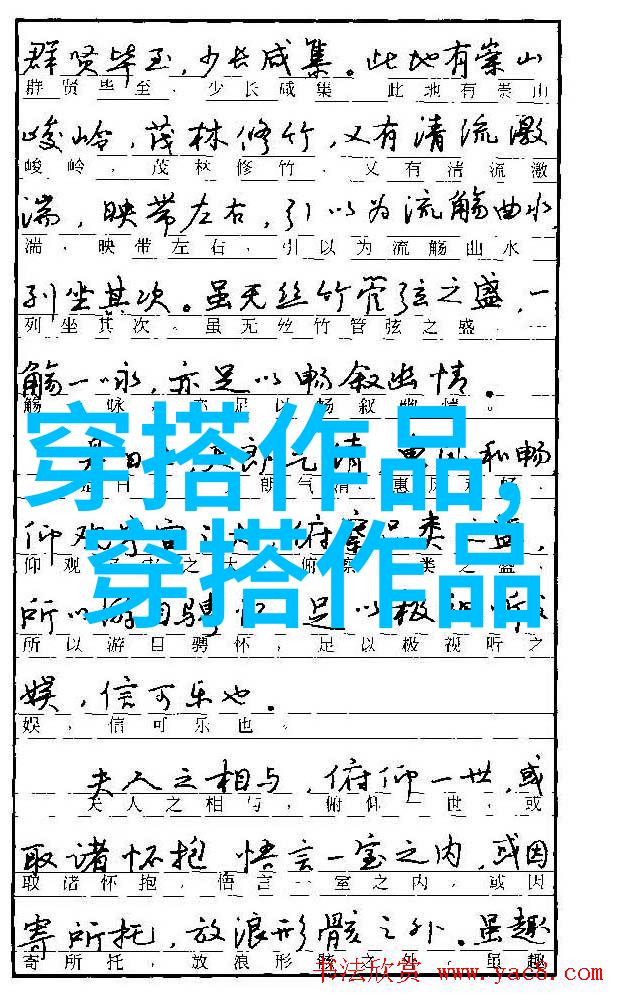 群贤毕至,少长咸集。此地有崇山
群贤毕至、少长咸集 此地有崇山
峻岭,茂林修竹,又有清流激
峻岭,茂林修竹、又有清流激
湍,映带左右,引以为流觞曲水,
湍、映带左右、引以为流觞曲水
列坐其次。虽无丝竹管弦之盛,一
列坐其次。虽无丝竹管弦之盛、一
觞一咏,亦足以畅叙幽情。
觞 咏,亦足以畅叙幽情。
穿搭作品,
穿搭作品
是日 朗气清 和畅
是日 朗气清、惠风和畅
仰观 俯察品类之盛,
仰观 之大 俯察 类之盛、
所以游目骋怀 足以极视听之
所以游目骋怀、足以极视听之
娱,信可乐也。
娱、信可乐也。
夫人之相与,俯仰一世,或
夫人之相与,俯仰一世、或
取诸怀抱 悟言一室之内,或因
取诸怀抱、悟言一室之内、或因
寄所托,放浪形骸之外。虽趣
寄所托,放浪形骸之外、虽趣
书法欣赏 www.yac8.com